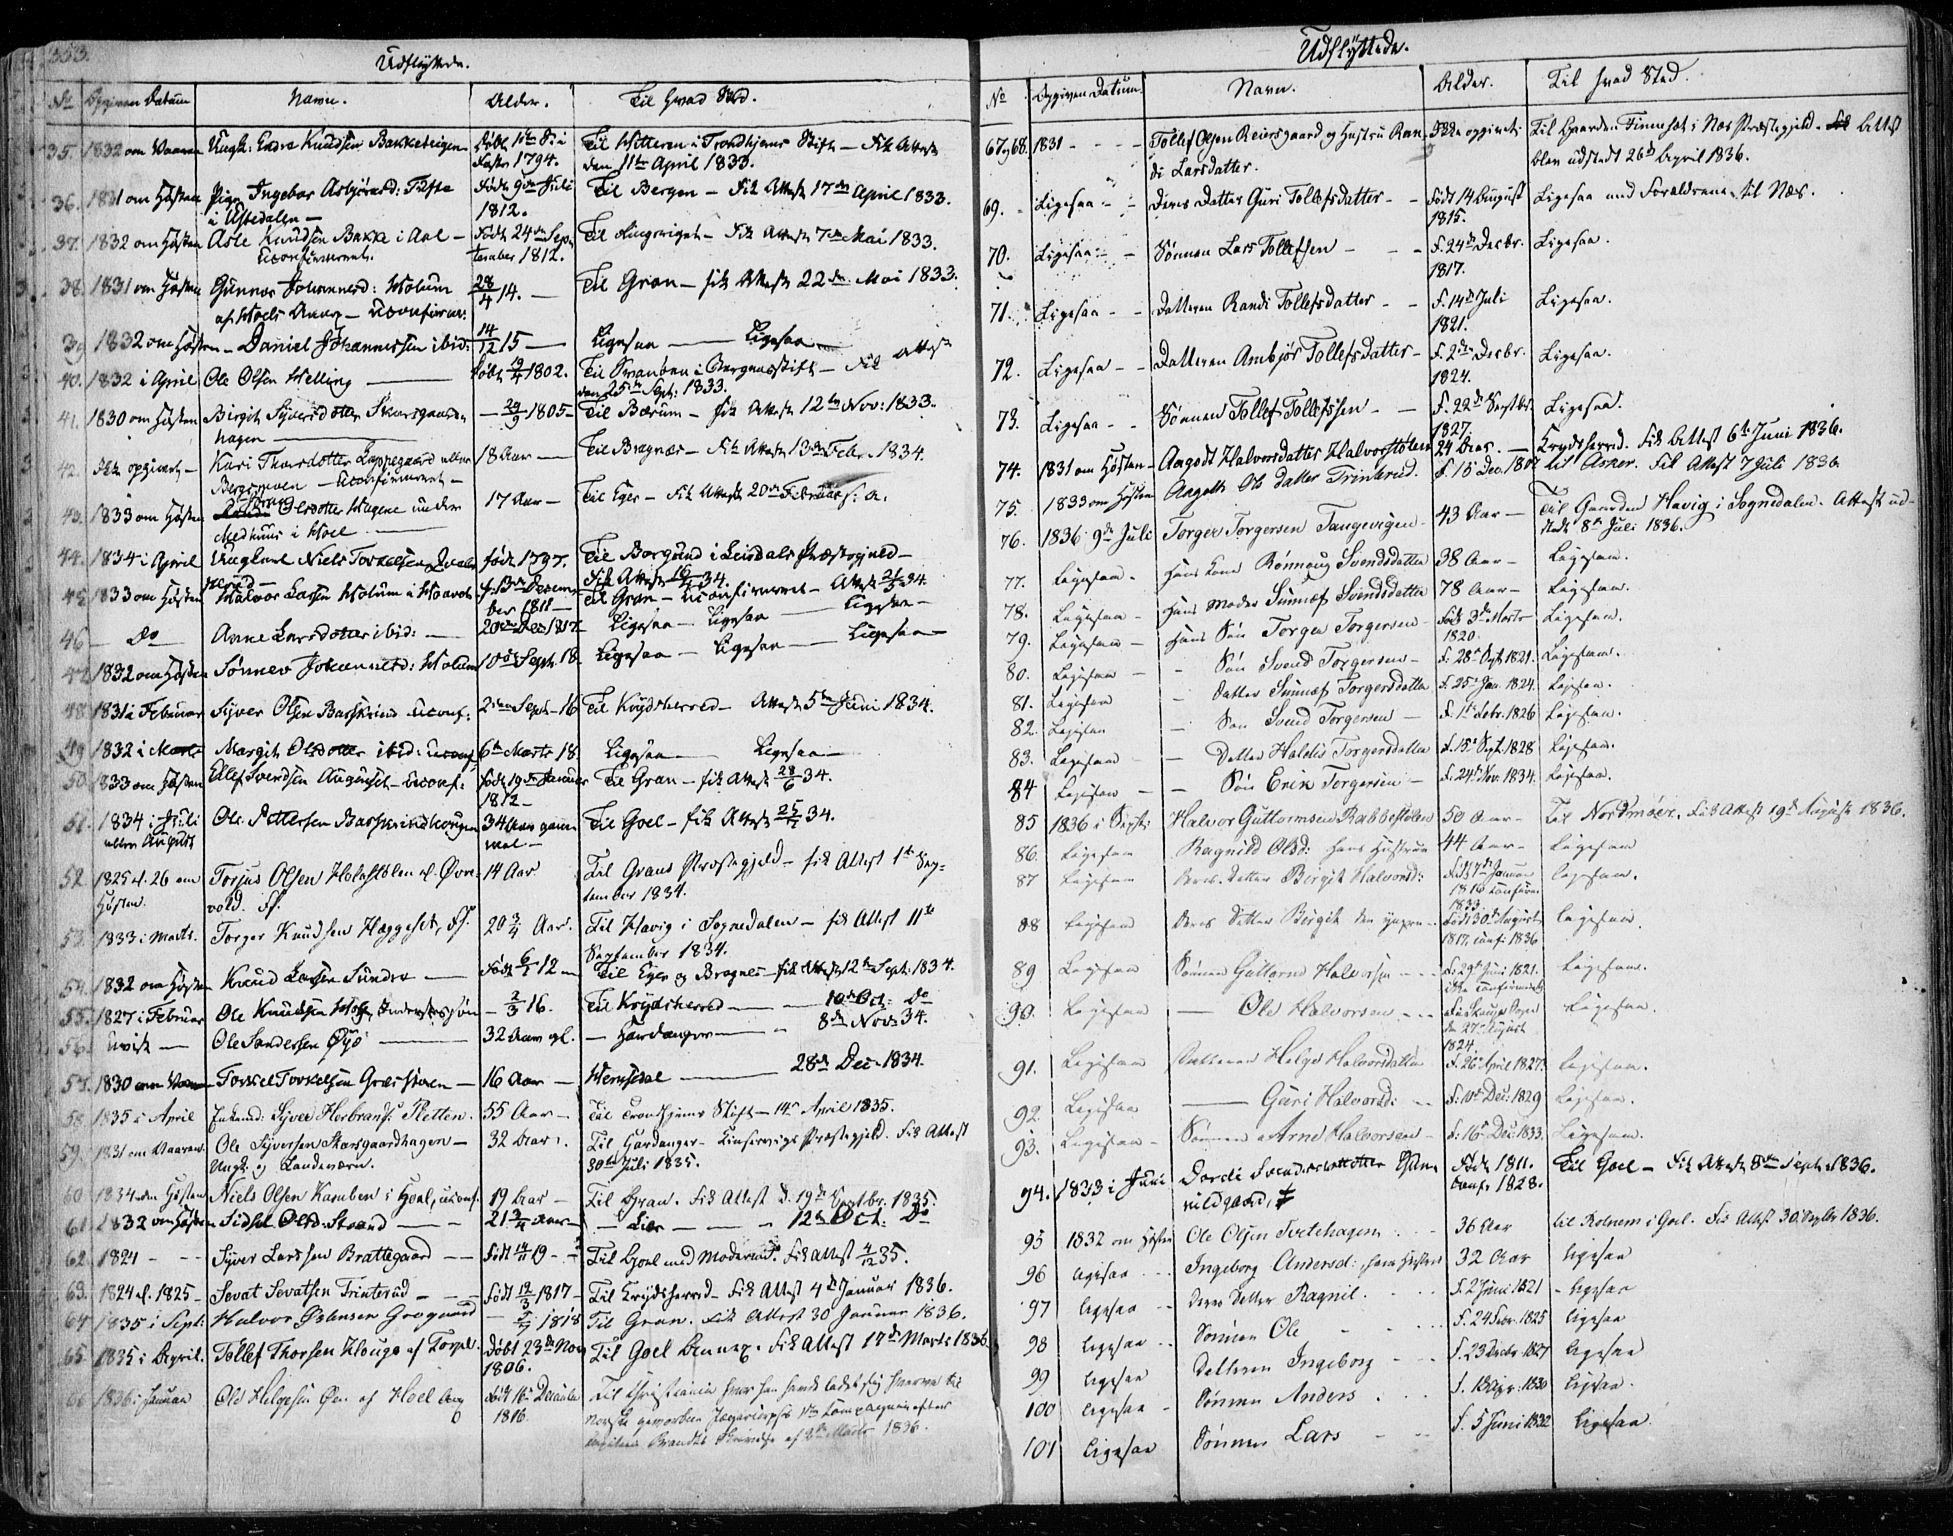 353.
Udflyttede.
No Opgiven Datum Navn. Alder. Til hvad Sted.
35. 1832 om Vaaren Ungk: Endre Knudsen Bakketeigen født 1794.
Til i Trondhjems Stift — Fik Attest den 11te April 1833.
36. 1831 om Høsten Pige Ingebor Asbjørnsd: Tufte i Ustedalen — Født 9de Juli 1812. Til Bergen — Fik Attest 17de April 1833.
37. 1832 om Høsten Asle Knudsen Bakke i Aal — uconfirmeret. Født 24de September 1812. Til Ringeriget — Fik Attest 7de Mai 1833.
38. 1831 om Høsten Gunnor Johannesd: Holum af Hoels Annex — uconfirmer: 28/4 14. — Til Gran — fik Attest 22de Mai 1833.
39. 1832 om Høsten — Daniel Johannessen ibid: 14/12 15 — Ligesaa — Ligesaa —
40. 1832 i April Ole Olsen Helling — født 19/4 1802. Til i Bergensstift — Fik Attest den 25de Sept: 1833.
41. 1830 om Høsten Birgit Syversdotter Skarsgaardshagen — 29/9 1805 — Til Bærum — fik Attest 12te Nov: 1833.
42. Ikke opgivet — Kari Thorsdotter eller Bergsmoen — uconfirmeret — 18 Aar — Til Bragnæs — Fik Attest 13de Febr. 1834.
43. 1833 om Høsten Olsdotter Hagene under Medhuus i Hoel — 17 Aar — Til Eger — Fik Attest 20de Februar s: a.
44. 1834 i April Ungkarl Niels Torkelsen — født 1797. Til Borgund i Leirdals Præstegjeld — Fik Attest 16/4 34.
45. 1833 om Høsten Halvor Larsen Holum i — f. 13de December 1811 — Til Gran — uconfirmeret — Attest 34
46 — Do Anne Larsdotter ibid: — 20de Dec 1817 — Ligesaa — Ligesaa — Ligesaa —
47. 1832 om Høsten Sønnev Johannesd: Holum 10de Sept. 18 Ligesaa — Ligesaa — Ligesaa —
48. 1831 i Februar Syver Olsen Baskrud uconf: 2den Sept. 16 Til Krydsherred — Attest 5te Juni 1834.
49. 1832 i Marts Margit Olsdotter ibid: uconf: 6te Marts 18. Ligesaa — Ligesaa —
50. 1833 om Høsten Ellef Svendsen — uconf: født 19de Januar 1812 — Til Gran — fik Attest 28/6 34.
51. 1834 i Juli eller August Ole Pettersen 34 Aar gammel — Til Goel — fik Attest 25/7 34.
52. 1825 el. 26 om Høsten. Torjus Olsen Holostølen el. Øvrevold. 14 Aar Til Grans Præstegjeld — fik Attest 1te September 1834.
53. 1833 i Marts. Torger Knudsen Heggeset, 20 3/4 Aar. Til Havig i Sognedalen — fik Attest 11te September 1834.
54. 1832 om Høsten Knud Larsen Sundre — Født 6/1 12 — Til Eger og Bragnes — fik Attest 12te Sept: 1834.
55. 1827 i Februar Ole Knudsen — 2/3 16. Til Krydsherred — 10de Oct: Do
56. uvist — Ole Sandersen Øyo — 32 Aar gl. — Hardanger — 8de Nov. 34.
57. 1830 om Vaaren Torkel Torkelsen — 16 Aar — Hemsedal — 28de Dec. 1834.
58. 1835 i April Enkemd: Syver Herbrands: Sletten. 55 Aar — Til Trondhjems Stift — 14de April 1835.
59. 1831 om Vaaren. Ole Syversen Skarsgaardhagen — Ungk: og Landeværn. 32 Aar. Til Hardanger — Kinservigs Præstegjeld. Fik Attest 30te Juli 1835.
60. 1834 om Høsten Niels Olsen Kamben i Hoel, uconf. 19 Aar — Til Gran. Fik Attest d. 19de Septbr. 1835.
61. 1832 om Høsten Sidsel Olsd: Strand — 21 3/4 Aar — Lier — 12te Oct: Do
62. 1821 — Syver Larssen Brattegaard — Født 19 — Til Goel med Moderen. Fik Attest 4/12 35.
63. 1824 el. 1825 — Sevat Sevatsen Trinterud — Født 12/3 1817 — Til Krydsherred — Fik Attest 4de Januar 1836.
64. 1835 i Sept: Halvor Østensen — 5/7 1818 Til Gran. Fik Attest 30 Januar 1836.
65. 1835 i April. Tollef Thorsen Houge af Torpe. Født 23de Nov 1806. Til Goel Annex. Fik Attest 17de Marts 1836.
66. 1836 i Januar Ole Helgesen Øen af Hoel Anx født 16de December 1816. Til Christiania hvor han havde ladet sig hverve til norske geworbne Jægercorpses 1ste Compagnie efter Capitain Brandts Skrivelse af 2den Marts 1836.
Udflyttede.
No Opgiven Datum Navn. Alder. Til hvad Sted.
67 og 68. 1831 — Tollef Olsen Reiersgaard og Hustru Randi Larsdatter. Ikke opgivet. Til Gaarden Finnesæt i Næs Præstegjeld. Attest blev udstedt 26de April 1836.
69. Ligesaa — Deres Datter Guri Tollefsdatter — Født 14 August 1815. Ligesaa med Forældrene til Næs.
70. Ligesaa — Sønnen Lars Tollefsen — f. 24de Decbr. 1817. Ligesaa.
71. Ligesaa — Datteren Randi Tollefsdatter — f. 14de Juli 1821. Ligesaa.
72. Ligesaa — Datteren Ambjør Tollefsdatter — f. 2den Decbr. 1824. Ligesaa.
73. Ligesaa — Sønnen Tollef Tollefssen — f. 22de Septbr. 1827. Ligesaa.
74. 1831 om Høsten — Aagodt Halvorsdatter Halvorstølen 24 Aar. — Krydsherred. Fik Attest 6te Juni 1836.
75. 1833 om Høsten Aagoth Ols Datter Trinterud. f. 15 Dec. til Asker. Fik Attest 7 Juli 1836
76. 1836 9de Juli Torger Torgersen Tangevigen — 43 Aar — Til Gaarden Havig i Sognedalen. Attest udstedt 8de Juli 1836.
77. Ligesaa — Hans Kone Rønnaug Svendsdatter 38 Aar — Ligesaa.
78. Ligesaa — Hans Moder Sunnef Svendsdatter 78 Aar — Ligesaa.
79. Ligesaa — Hans Søn Torger Torgersen — født 3de Marts 1820. Ligesaa.
80. Ligesaa — Søn Svend Torgersen — f. 28de Sept. 1821. Ligesaa.
81. Ligesaa — Datter Sunnef Torgersdatter f. 25de Jan. 1824. Ligesaa.
82. Ligesaa — Søn Svend Torgersen — f. 1ste Febr. 1826 Ligesaa.
83. Ligesaa — Datter Haldis Torgersdatter f. 15de Sept. 1828 Ligesaa.
84 Ligesaa — Søn Erik Torgersen — f. 24de Nov. 1834. Ligesaa.
85 1836 i Septr Halvor Guttormsen Rabbestølen 50 Aar — Til Nordmøer. Fik Attest 19de August 1836.
86. Ligesaa Ragnild Olsd: hans Hustru 44 Aar — Ligesaa
87 Ligesaa Deres Datter Birgit Halvorsd: f. 17de Januar 1816 confirm. 1833. Ligesaa.
88 Ligesaa Deres Datter Birgit den yngre — født 30te August 1817, conf: 1836 Ligesaa.
89 Ligesaa Sønnen Guttorm Halvorsen — f. 29de Juni 1821. ikke confirmeret Ligesaa.
90. Ligesaa — Ole Halvorsen — den 27de August 1824. Ligesaa.
91. Ligesaa Datteren Helge Halvorsdatter f. 26de April 1827. Ligesaa.
92. Ligesaa — Guri Halvorsd: — f. 10de Dec: 1829 Ligesaa.
93. Ligesaa — Sønnen Arne Halvorsen — f. 16de Dec. 1833. Ligesaa.
94. 1833 i Juni Dordi født 1811. conf. 1828. Til Goel — Fik Attest 8de Sept. 1836.
95 1832 om Høsten Ole Olsen Tvetehagen 36 Aar til i Goel. Fik Attest 30. Septbr 1836.
96 ligesaa Ingeborg Andersd: hans Hustru 32 Aar ligesaa
97 ligesaa Deres Datter Ragnil. f. 2 Juni 1821 ligesaa
98 ligesaa Sønnen Ole f. 24 Febr. 1825 ligesaa
99 ligesaa Datteren Ingeborg f. 23 Decbr. 1827 ligesaa
100 ligesaa Sønnen Anders f. 18 Apr. 1830 ligesaa.
101 ligesaa Sønnen Lars f. 5 Juni 1832 ligesaa.